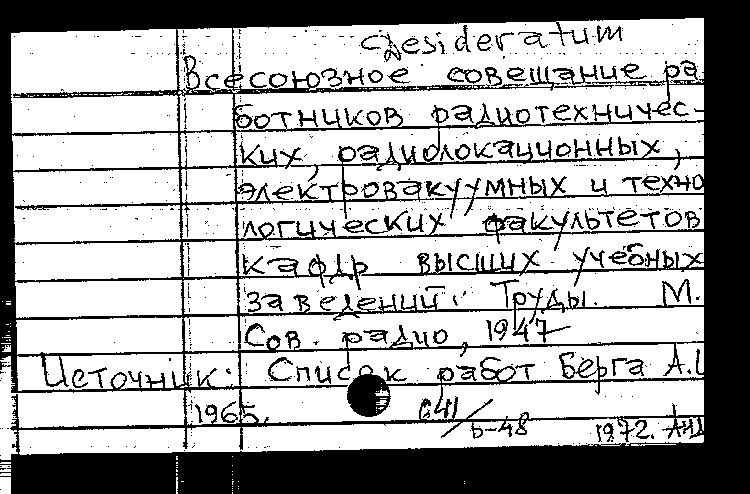 Desideratum
Всесоюзное совещание ра
ботников радиотехничес-
ких, радиолокационных,
электровакуумных и техно
логических факультетов
кафдр высших учебных
заведений. Труды. М.
Сов. радио, 1947
Источник: Список работ Берга А.И
1965. С41/Б-48 1972.